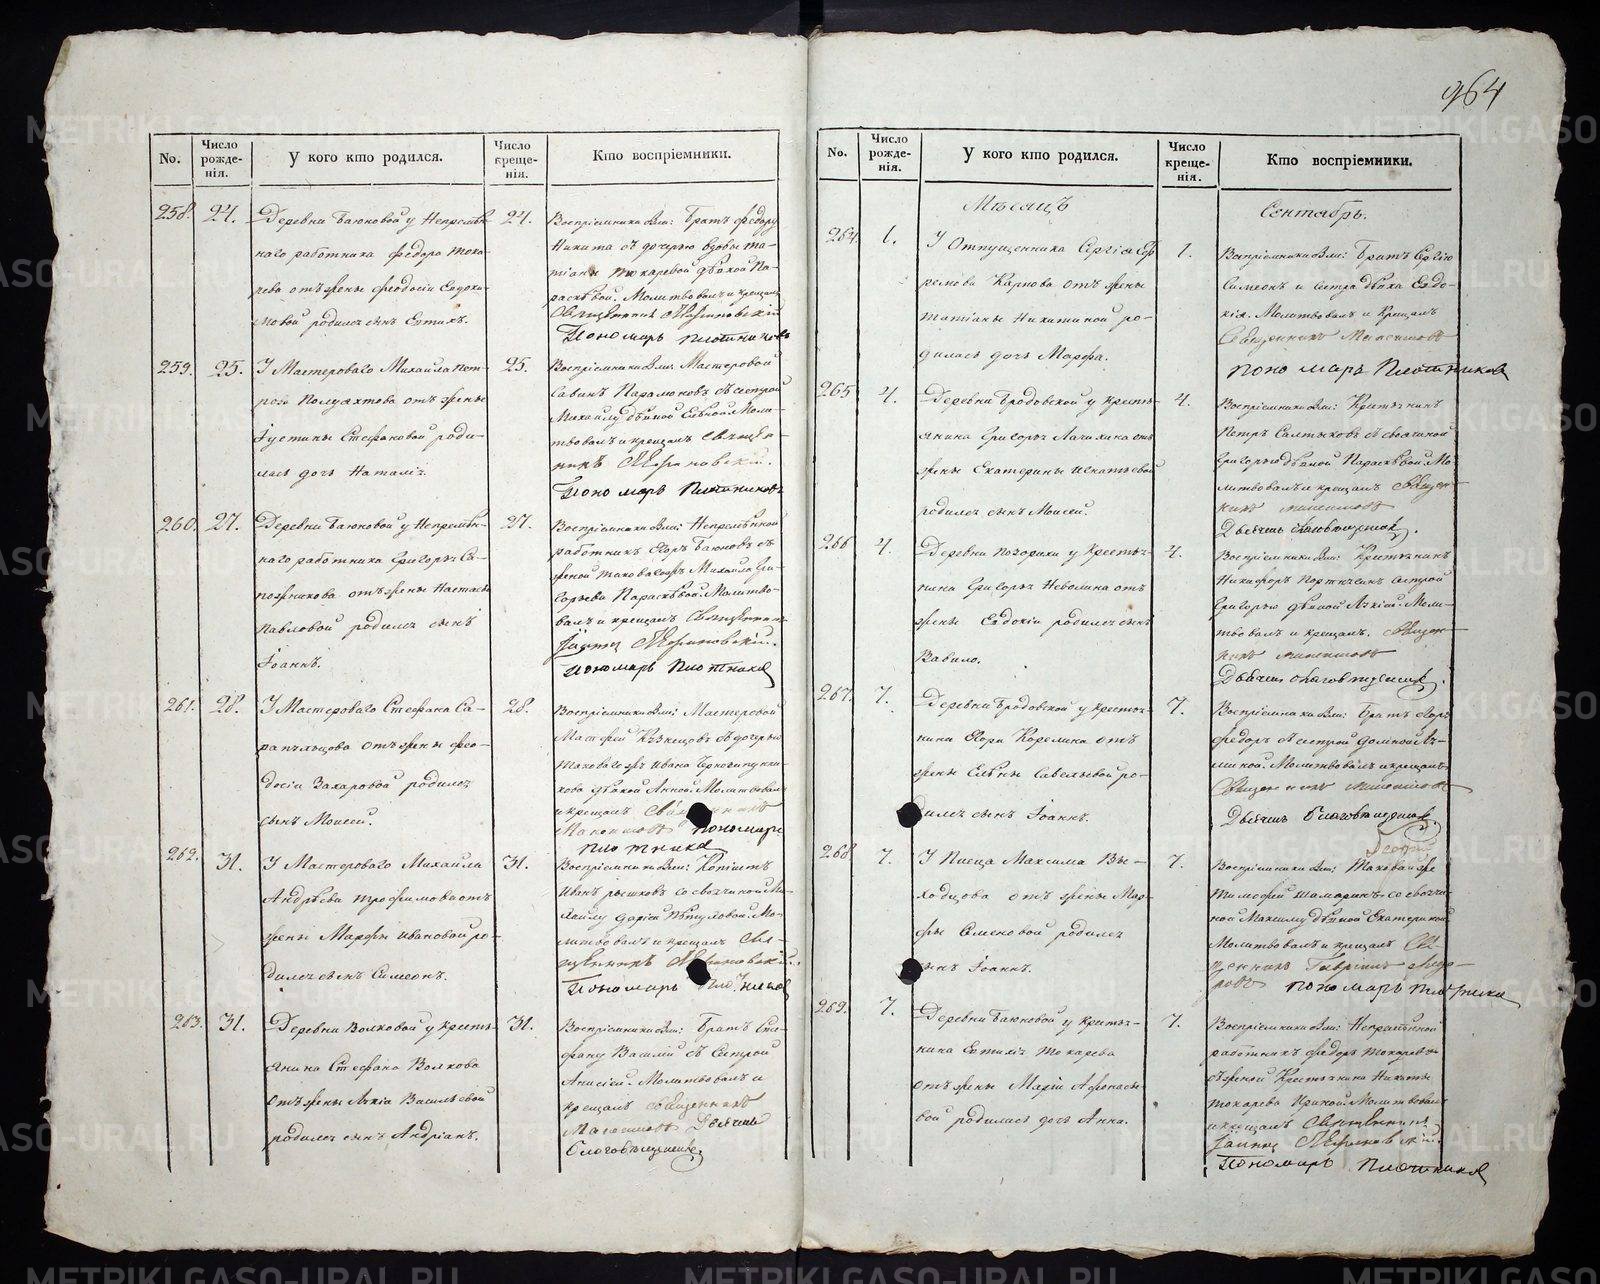 964
No.
Число рожде-нія.
У кого кто родился.
Число креще-нія.
Кто воспріемники.
258.
24.
Деревни Баюновой у Непремѣн-
наго работника Федора Тока-
рева отъ жены Феодосіи Евдоки-
мовой родился сынъ Евтихъ.
24.
Воспріемники были: Братъ Федору
Никита съ дочерью вдовы Та-
тіаны Токаревой дѣвкой Па-
раскѣвой. Молитвовалъ и крещалъ
Священникъ
Пономарь Плотниковъ
259.
25.
У Мастероваго Михаила Пет-
рова Полуяхтова отъ жены
Іустины Стефановой роди-
лась дочь Наталія.
25.
Воспріемники были: Мастеровой
Савинъ Парамоновъ съ сестрой
Михаилу дѣвкой Еленой. Моли-
твовалъ и крещалъ Священ-
никъ
Пономарь Плотниковъ
260.
27.
Деревни Баюновой у Непремѣн-
наго работника Григорья Са-
пожникова отъ жены Настасьи
Павловой родился сынъ
Іоаннъ.
27.
Воспріемники были: Непремѣнной
работникъ Егоръ Баюновъ съ
женой таковагожъ Михаила Гри-
горьева Параскѣвой. Молитво-
валъ и крещалъ Священникъ
Пономарь Плотниковъ
261.
28.
У Мастероваго Стефана Са-
рапульцова отъ жены Фео-
досіи Захаровой родился
сынъ Моисей.
28.
Воспріемники были: Мастеровой
Матфей Кузнецовъ съ дочерью
таковагожъ Ивана
дѣвкой Анной. Молитвовалъ
и крещалъ Священникъ
Пономарь
Плотниковъ
262.
31.
У Мастероваго Михаила
Андрѣева Трофимова отъ
жены Марфы Ивановой ро-
дился сынъ Симеонъ.
31.
Воспріемники были: Копіистъ
Иванъ со своячиной Ми-
хаилу Дарьей Пѣтуховой. Мо-
литвовалъ и крещалъ Свя-
щенникъ
Пономарь Плотниковъ
263.
31.
Деревни Волковой у крестья-
янина Стефана Волкова
отъ жены Лукіи Васильевой
родился сынъ Андріанъ.
31.
Воспріемники были: Братъ Сте-
фану Василій съ Сестрой
Анисіей. Молитвовалъ и
крещалъ Священникъ
Дьячекъ
Благовѣщенскій.
No.
Число рожде-нія.
У кого кто родился.
Число креще-нія.
Кто воспріемники.
Мѣсяцъ
Сентябрь.
264.
1.
У Отпущенника Сергія Еф-
ремова Карпова отъ жены
Татіаны Никитиной ро-
дилась дочь Марфа.
1.
Воспріемники были: Братъ Сергію
Симеонъ и сестра дѣвка Евдо-
кія. Молитвовалъ и Крещалъ
Священникъ
Пономарь Плотниковъ
265
4.
Деревни Бродовской у кресть-
янина Григорья Лачихина отъ
жены Екатерины Игнатьевой
родился сынъ Моисей.
4.
Воспріемники были: Крестьянинъ
Петръ Салтыковъ съ своячиной
Григорью дѣвкой Параскѣвой. Мо-
литвовалъ и крещалъ Священ-
никъ
Дьячекъ Благовѣщенскій.
266
4.
Деревни Позорихи у Крестья-
нина Григорья Неволина отъ
жены Евдокіи родился сынъ
Вавило.
4.
Воспріемники были: Крестьянинъ
Никифоръ съ сестрой
Григорью дѣвкой Лукіей. Моли-
твовалъ и крещалъ. Священ-
никъ
Дьячекъ Благовѣщенскій.
267.
7.
Деревни Бродовской у крестья-
нина Егора Карелина отъ
жены Елены Савельевой ро-
дился сынъ Іоаннъ.
7.
Воспріемники были: Братъ Егору
Федоръ съ сестрой
Молитвовалъ и крещалъ
Священникъ
Дьячекъ Благовѣщенскій
268
7.
У Писца Максима Вы-
ходцова отъ жены Мар-
фы Семеновой родился
сынъ Іоаннъ.
7.
Воспріемники были: Таковой же
Тимофей Шамаринъ со своячи-
ной Максиму дѣвкой Екатериной
Молитвовалъ и крещалъ Свя-
щенникъ Гавріилъ
Пономарь Плотниковъ
269.
7.
Деревни Баюновой у крестья-
нина Евтихія Токарева
отъ жены Маріи Афонасье-
вой родилась дочь Анна.
7.
Воспріемники были: Непремѣнной
работникъ Федоръ Токаревъ
съ женой Крестьянина Никиты
Токарева Ириной. Молитвовалъ
и крещалъ Священникъ
Пономарь Плотниковъ
METRIKI.GASO-URAL.RU